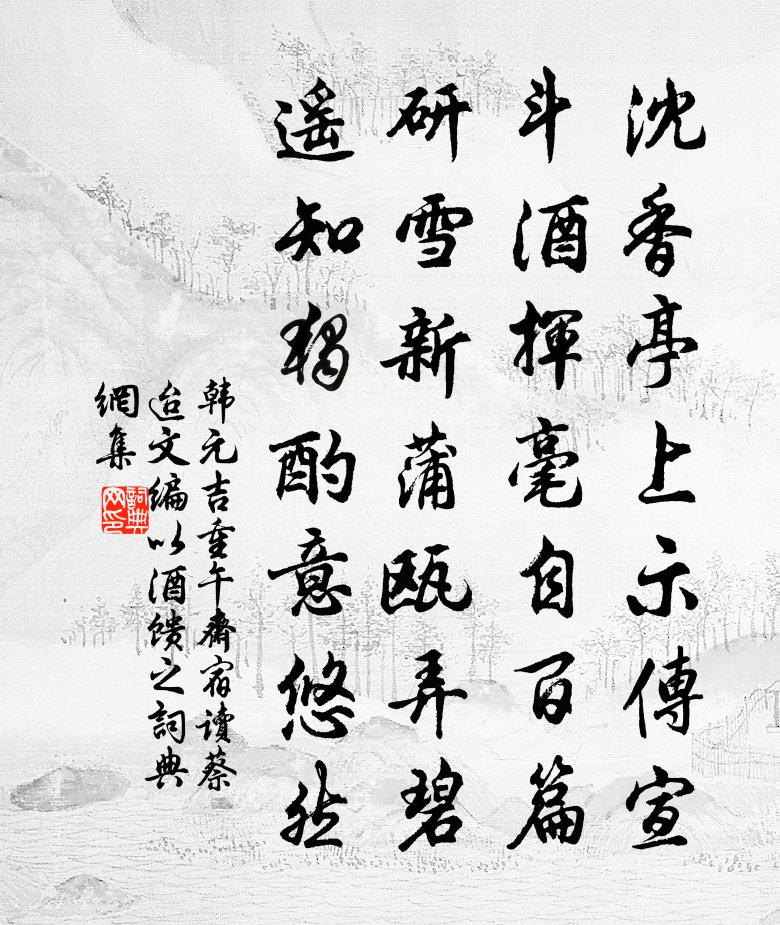 沈香亭上示傳宣
斗酒揮毫自百篇
研雪新蒲瓯弄碧
遥知獨酌意悠然
韩元吉重午齋宿读蔡
迨文编以酒馈之詞典
網集
詞典
网印